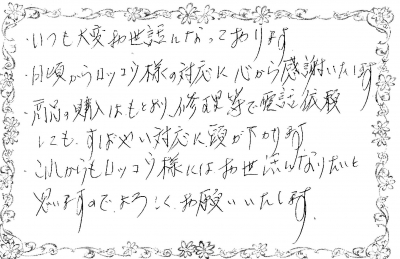 ・いつも大変お世話になっております
・日頃からロッコウ様の対応に心から感謝いたします
・商品の購入はもとより、修理等で電話依頼
しても、すばやい対応に頭が下がります
・これからもロッコウ様にはお世話になりたいと
思いますので、よろしくお願いいたします。